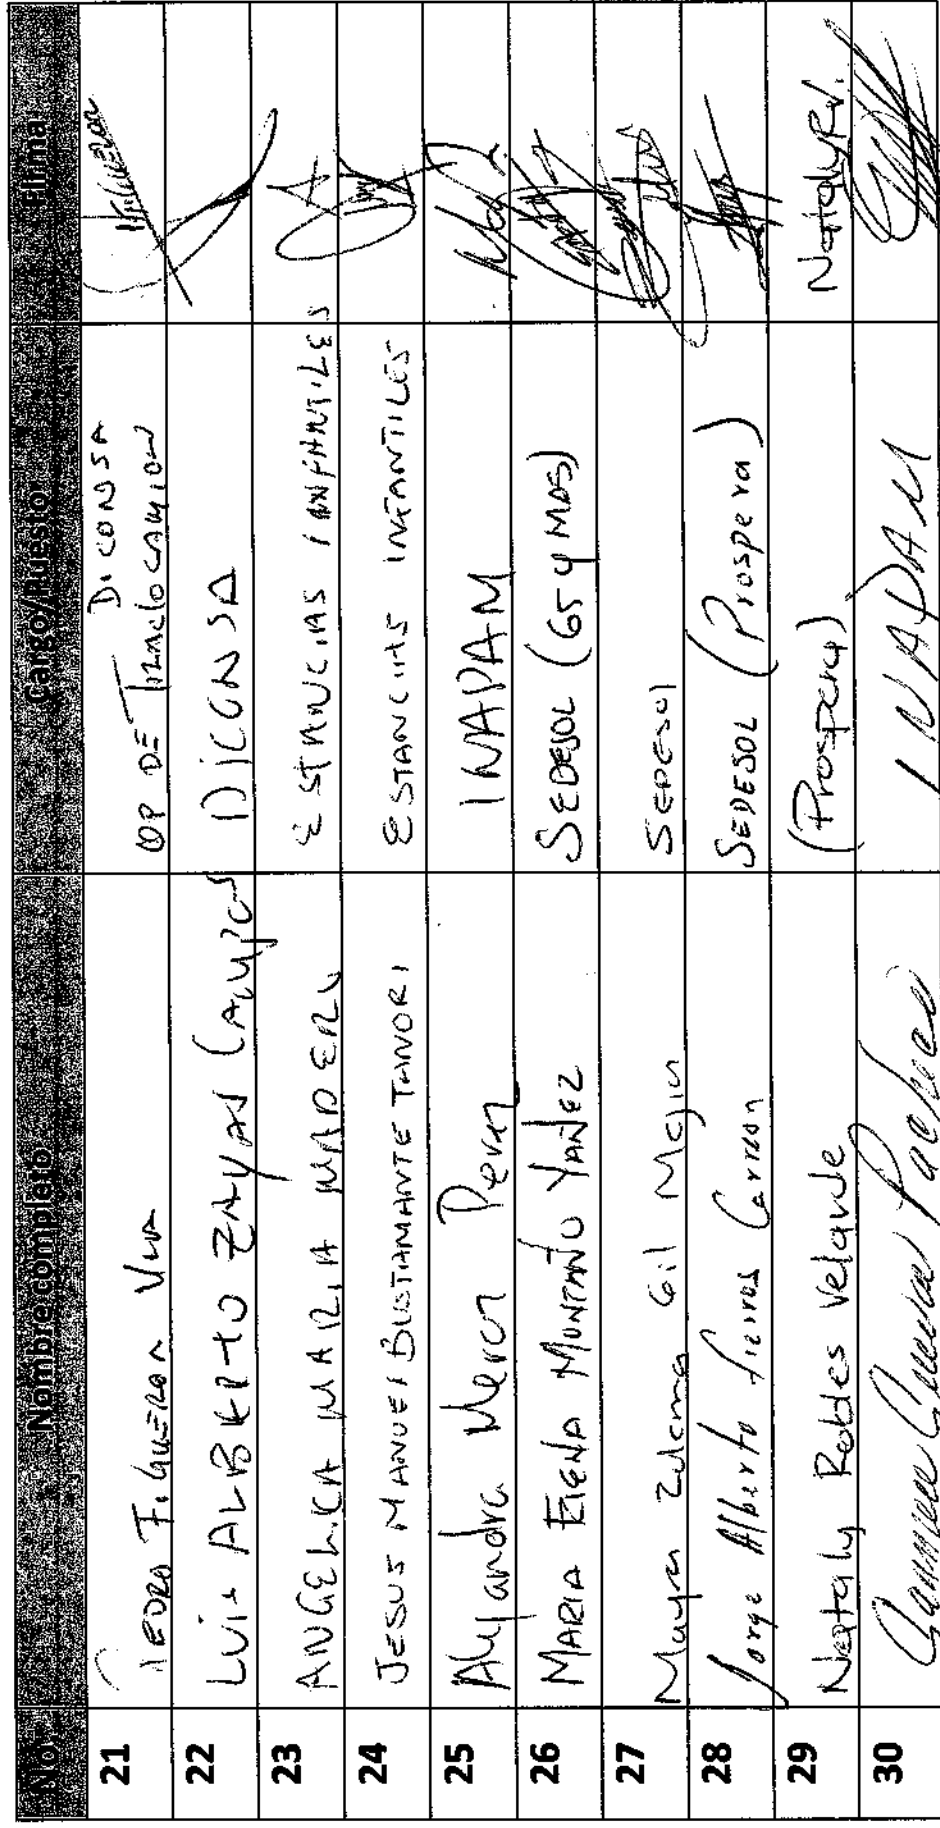 No. Nombre completo Cargo/Puesto Firma
21 PEDRO FIGUEROA DICONSA
OP DE
22 LUIS ALBERTO ZAYAS CAMPOS DICONSA
23 ANGELICA MARIA MADERO ESTANCIAS INFANTILES
24 JESUS MANUEL BUSTAMANTE TANORI ESTANCIAS INFANTILES
25 Alejandra Perez INAPAM
26 MARIA ELENA MONTAÑO YAÑEZ SEDESOL (65 y MAS)
27 Mayra Zulema Gil Mejia SEDESOL
28 Jorge Alberto Fierros Carreon SEDESOL (Prospera)
29 Nataly Robles Velarde (Prospera) NatalyRV.
30 Pacheco INAPAM